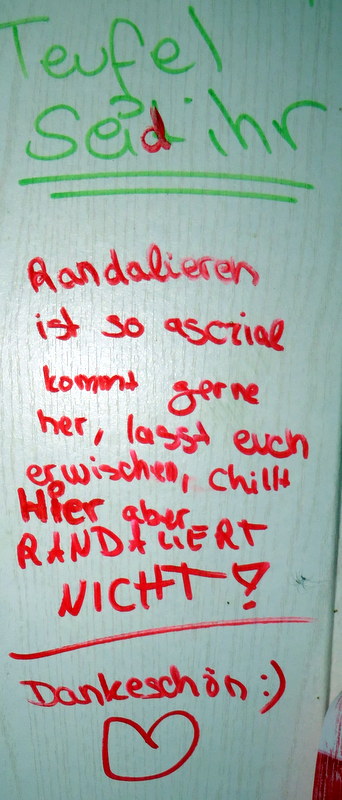 Teufel
Seid ihr
Randalieren
ist so asozial
kommt gerne
her, lasst euch
erwischen, chillt
Hier aber
RANDALIERT
NICHT!
Dankeschön :)